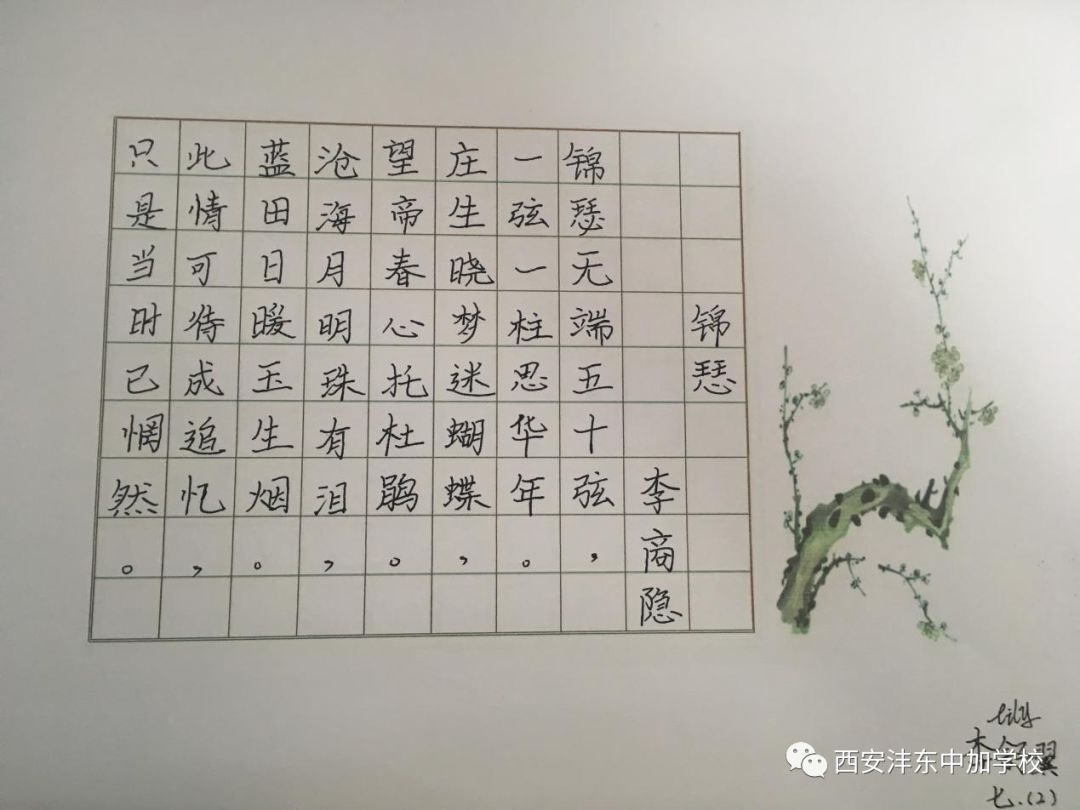 锦瑟
李商隐
锦瑟无端五十弦，
一弦一柱思华年。
庄生晓梦迷蝴蝶，
望帝春心托杜鹃。
沧海月明珠有泪，
蓝田日暖玉生烟。
此情可待成追忆，
只是当时已惘然。
七.(2)
西安沣东中加学校